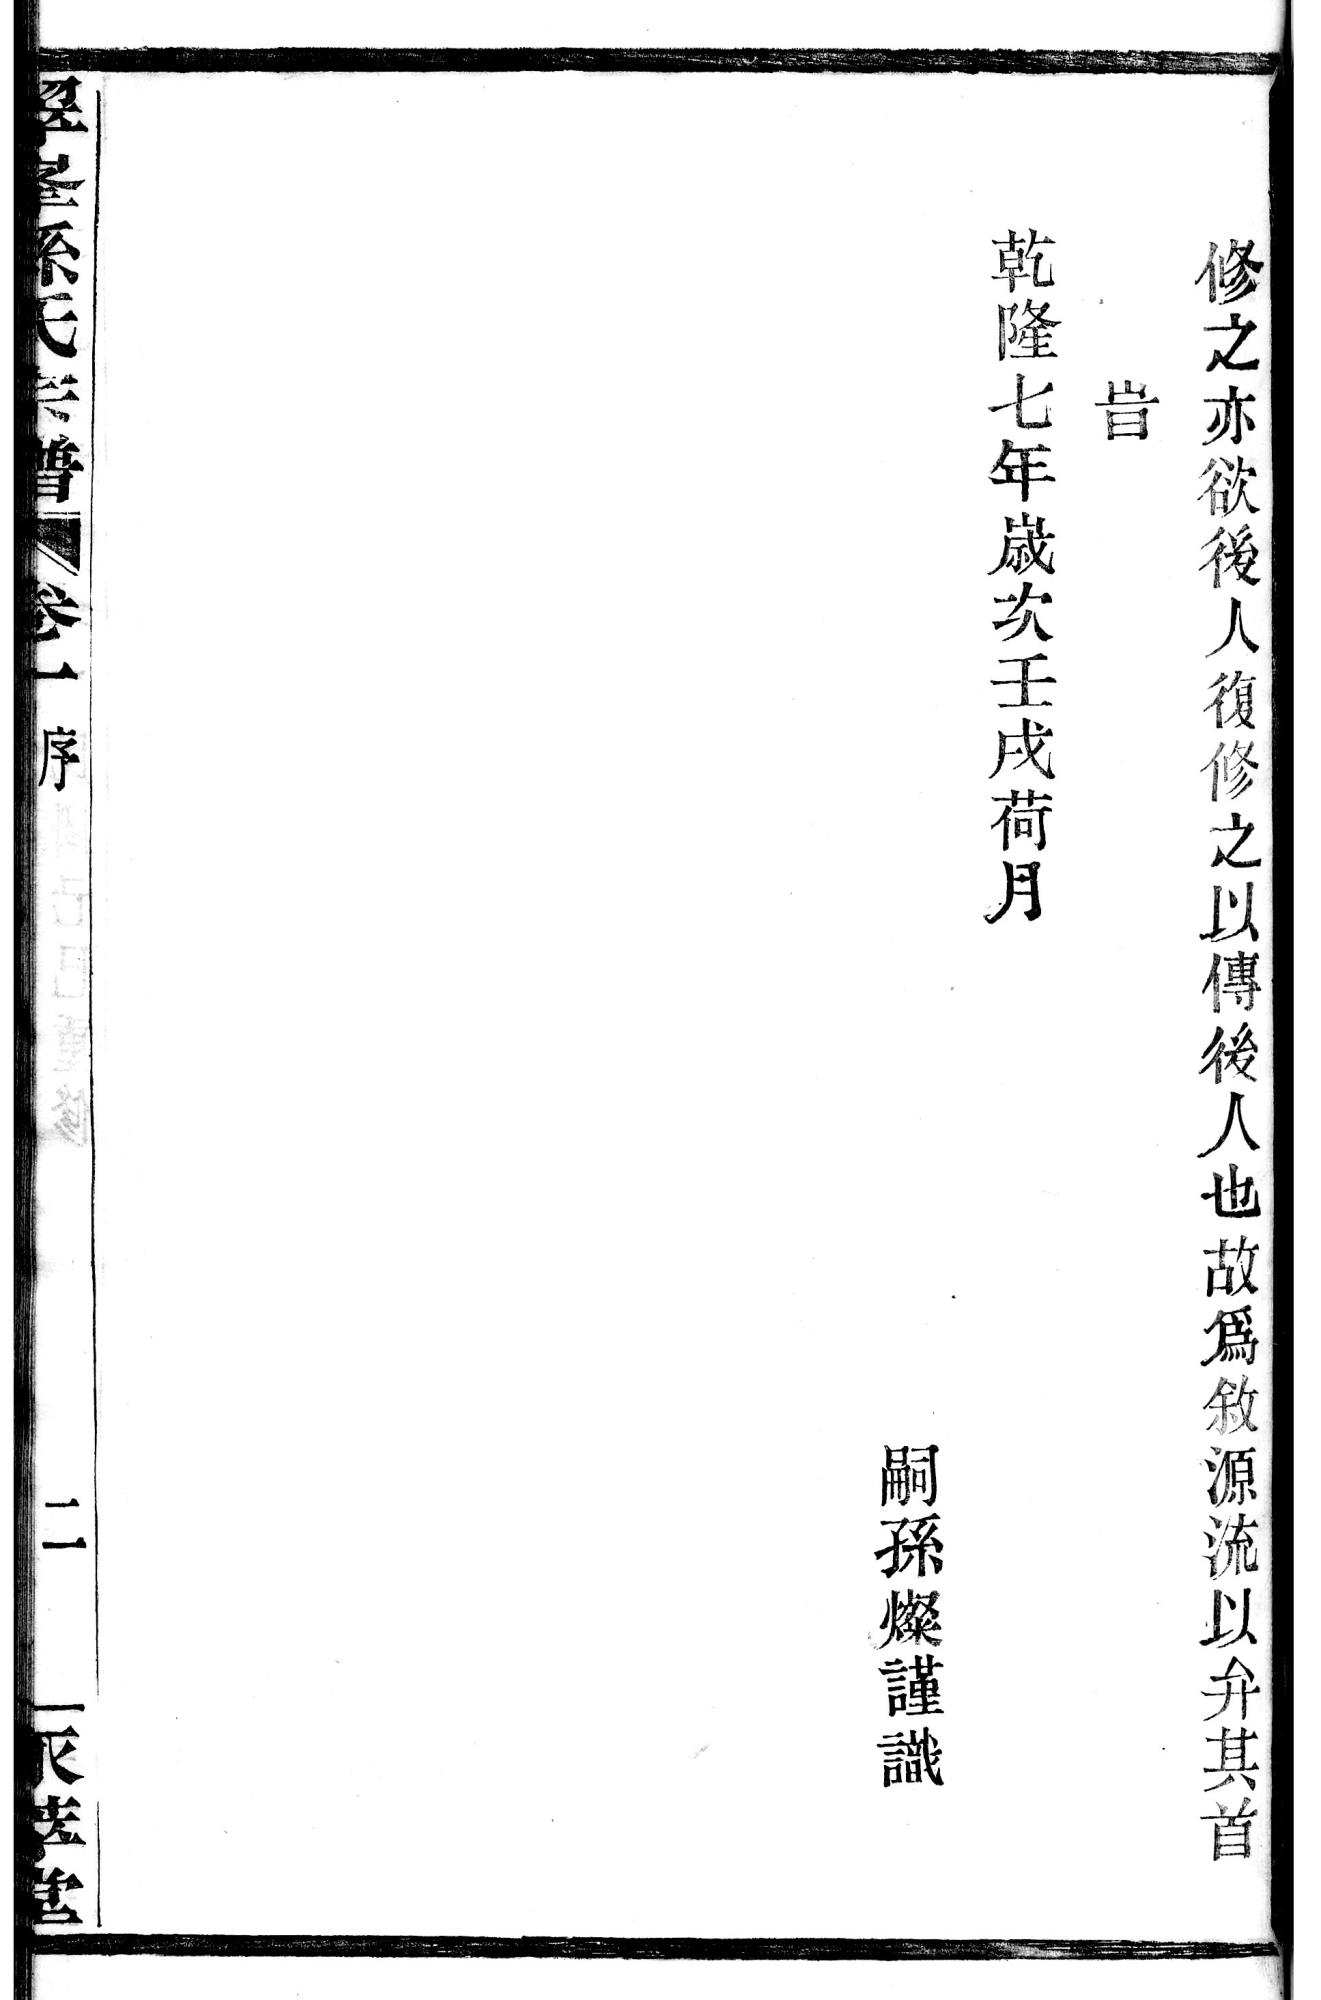 修之亦欲後人復修之以傳後人也故爲敘源流以弁其首
旹
乾隆七年歲次壬戌荷月
嗣孫燦謹識
孫氏宗譜 卷一 序 二